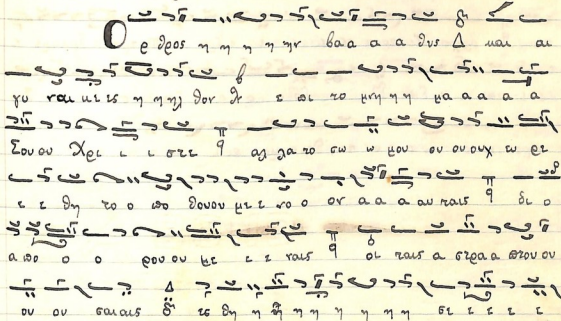 Ο ρ θρος η η η η ην βαα α α θυς Δ και αι
γυ ναι κε ες η η ηλ θον θ ε πι το μνη η η μα α α α α
Σου ου Χρι ι ι στε q αλ λα το σω ω μου ου ου ουχ ω ρε
ε ε θη το ο πο θουου με ε νο ο ον α α α αυ ταις q δι ο
α πο ο ο ρου ου με ε ε ναις q οι ταις α στρα α πτου ου
ου ου σαι αις τε θη η η η η η η η σε ε ε ε